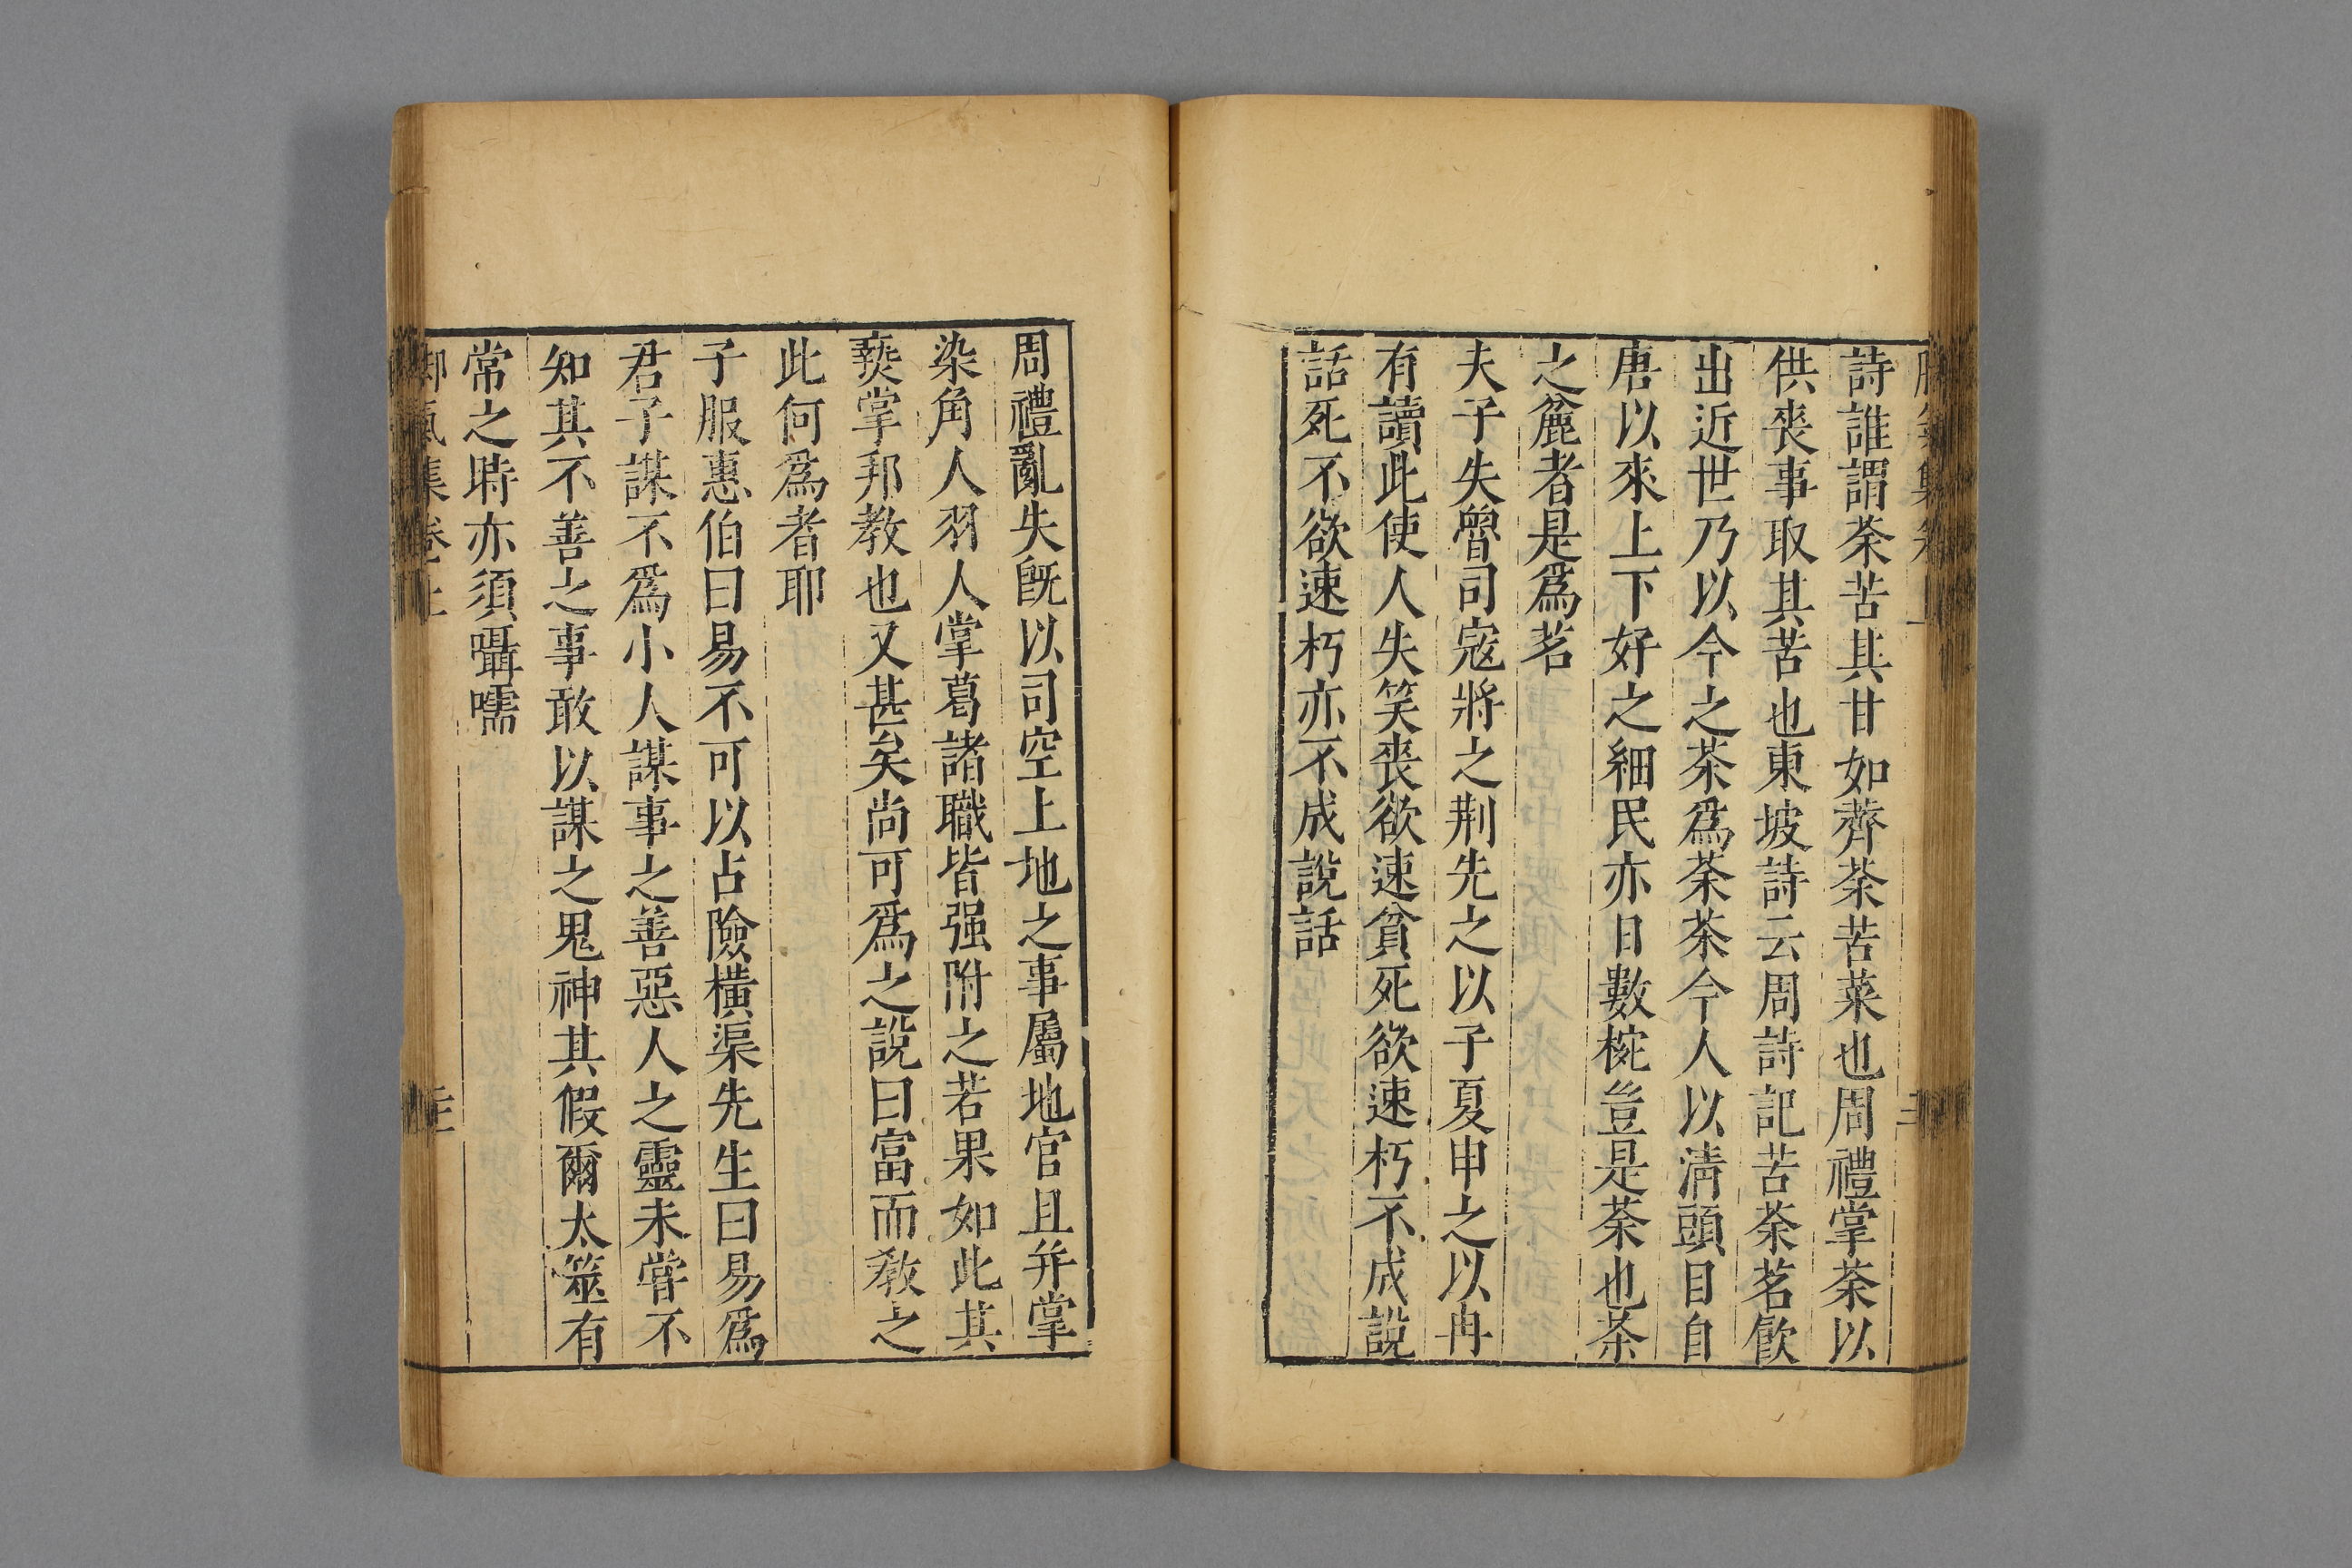 詩誰謂荼苦其甘如薺荼苦菜也周禮掌荼以
供喪事取其苦也東坡詩云周詩記苦荼茗飲
出近世乃以今之茶爲荼茶今人以清頭目自
唐以來上下好之細民亦日數椀豈是荼也茶
之麄者是爲茗
夫子失魯司寇將之荆先之以子夏申之以冉
有讀此使人失笑喪欲速貧死欲速朽不成說
話死不欲速朽亦不成說話
周禮亂失旣以司空上地之事屬地官且并掌
染角人羽人掌葛諸職皆强附之若果如此其
褻掌邦教也又甚矣尚可爲之說曰富而教之
此何爲者耶
子服惠伯曰易不可以占險橫渠先生曰易爲
君子謀不爲小人謀事之善惡人之靈未嘗不
知其不善之事敢以謀之鬼神其假爾太筮有
常之時亦須囁嚅
腳氣集卷上